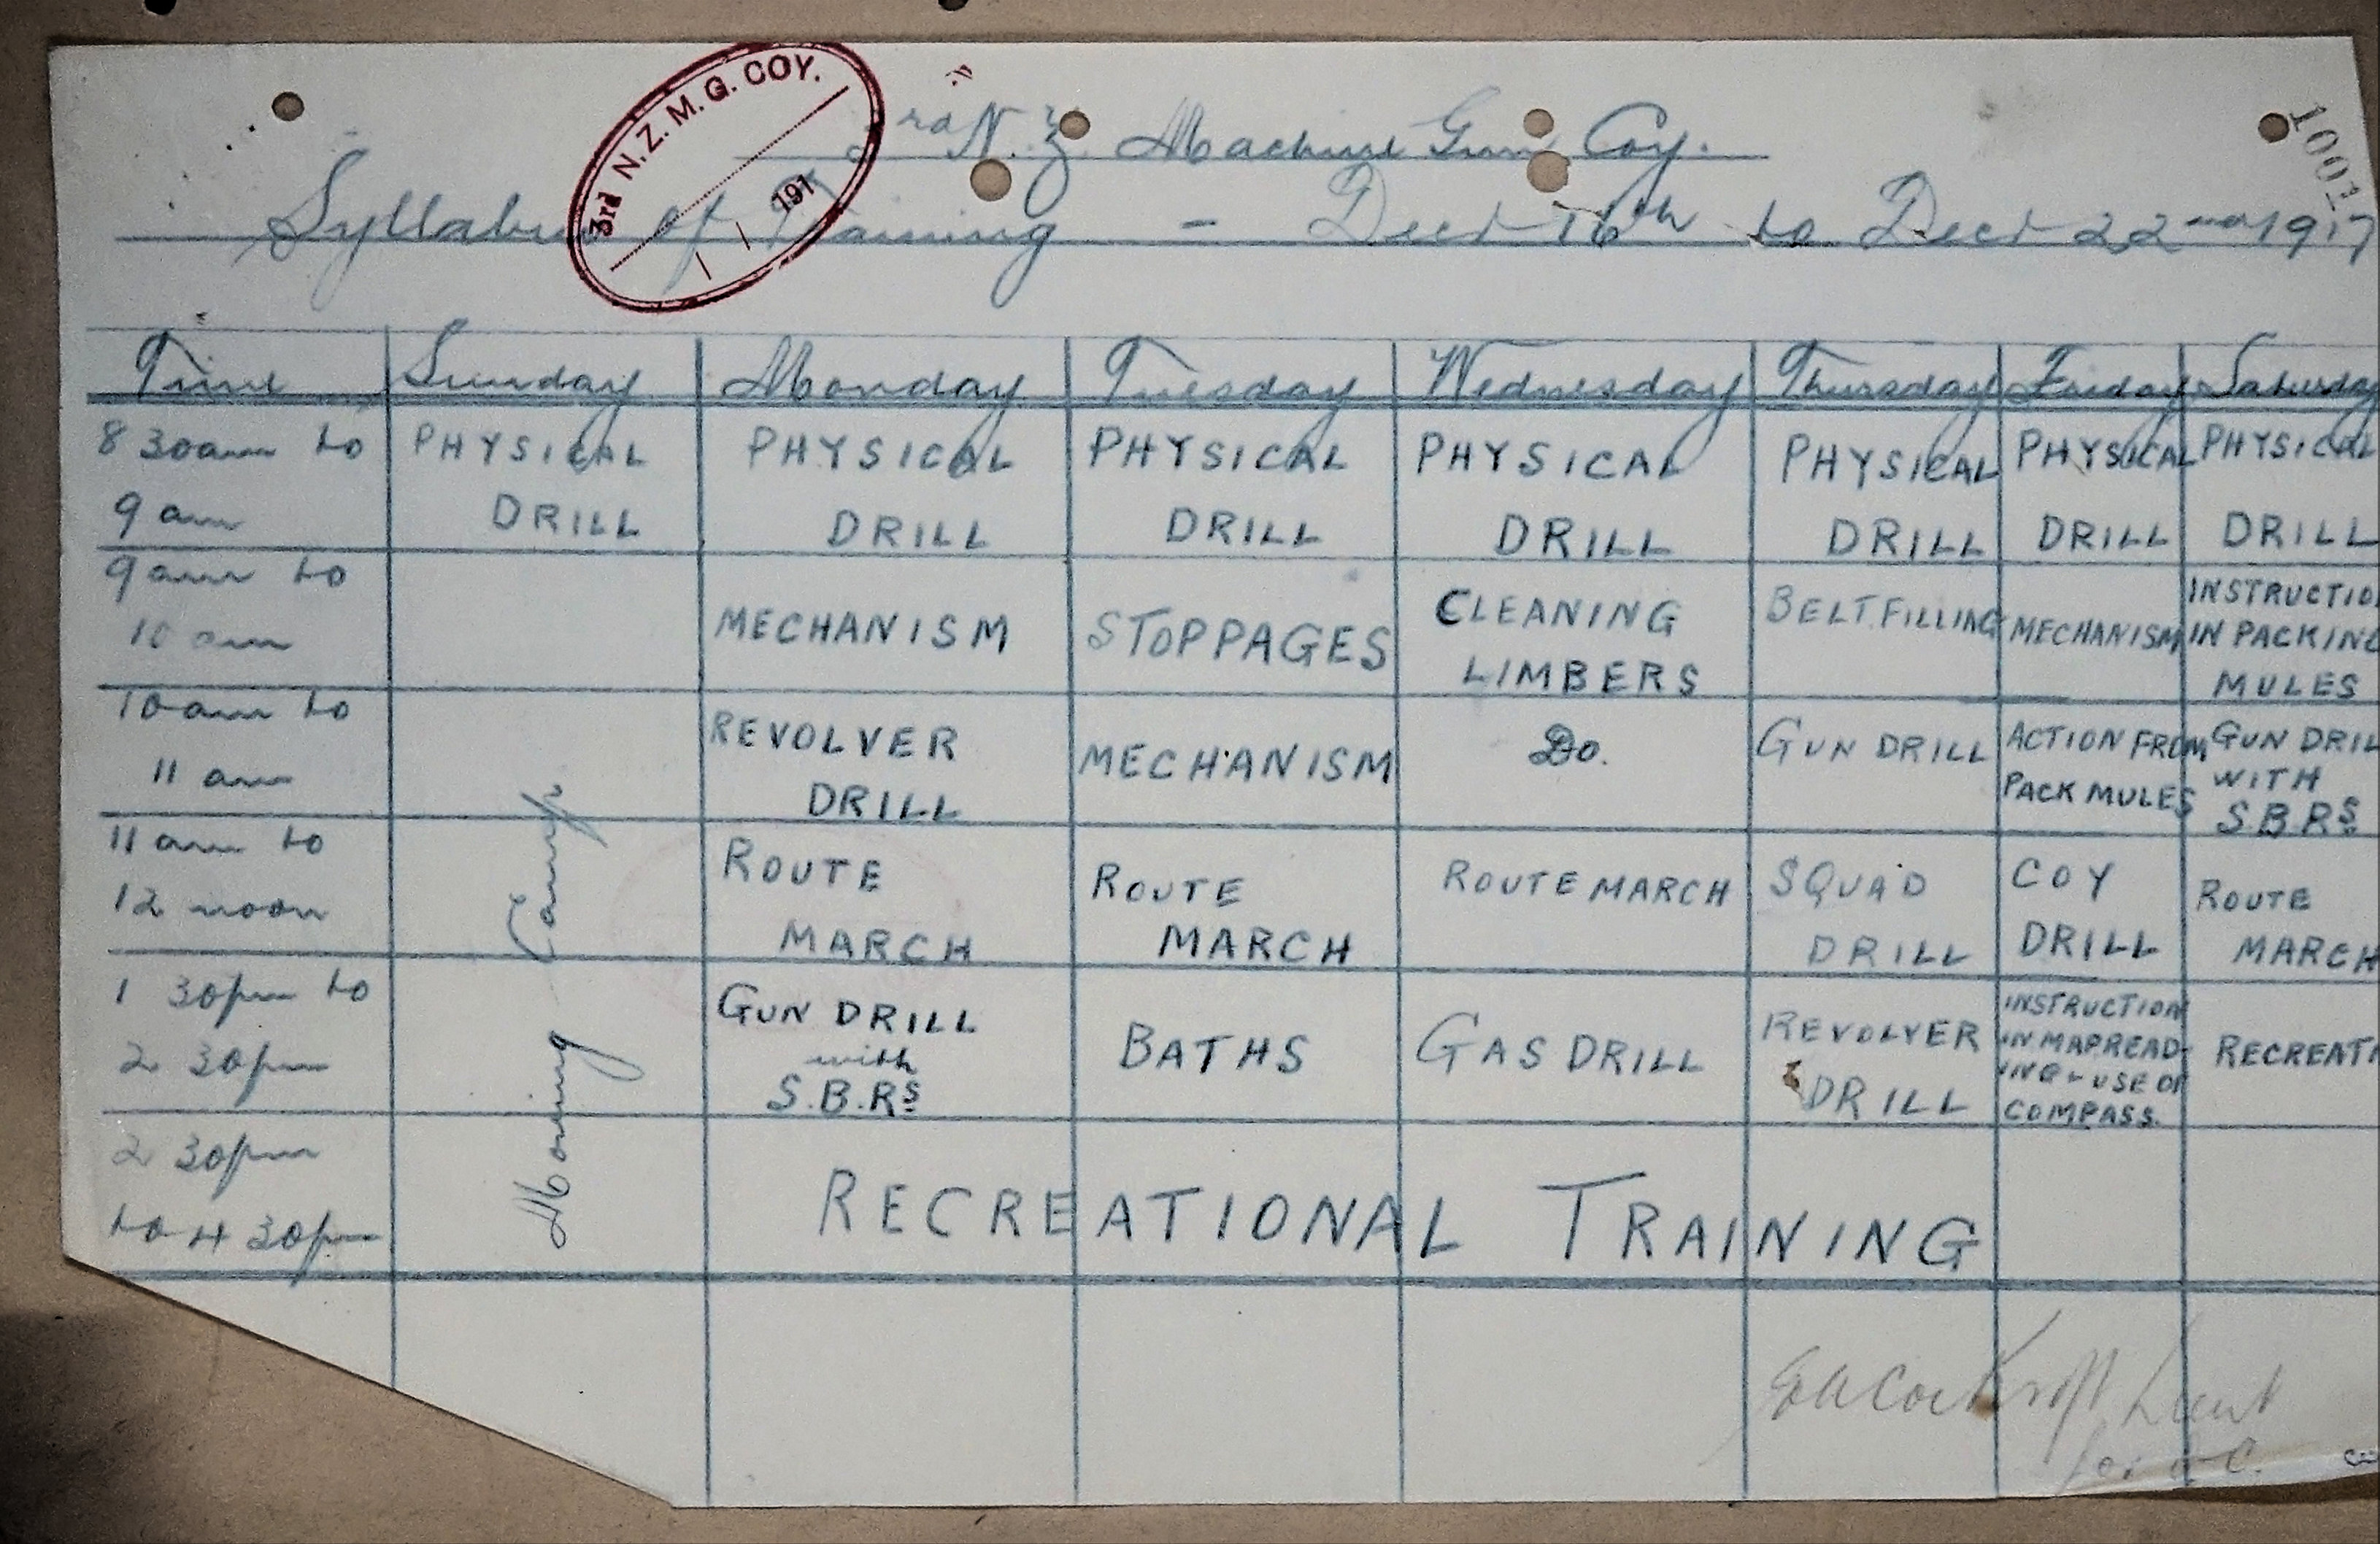 3rd N.Z. M.G. COY.
191
3rd N.Z. Machine Gun Coy.
1001
Syllabus of Training - Dect 16th to Dect 22nd 1917
Time Sunday Monday Tuesday Wednesday Thursday Friday Saturday
8 30am to 9 am
PHYSICAL DRILL
PHYSICAL DRILL
PHYSICAL DRILL
PHYSICAL DRILL
PHYSICAL DRILL
PHYSICAL DRILL
PHYSICAL DRILL
9 am to 10 am
MECHANISM
STOPPAGES
CLEANING LIMBERS
BELT FILLING
MECHANISM
INSTRUCTIO IN PACKING MULES
10 am to 11 am
REVOLVER DRILL
MECHANISM
Do.
GUN DRILL
ACTION FROM PACK MULES
GUN DRIL WITH S.B.Rs
11 am to 12 noon
ROUTE MARCH
ROUTE MARCH
ROUTE MARCH
SQUAD DRILL
COY DRILL
ROUTE MARCH
1 30pm to 2 30pm
GUN DRILL with S.B.Rs
BATHS
GAS DRILL
REVOLVER DRILL
INSTRUCTION IN MAP READ- ING & USE OF COMPASS.
RECREATI
2 30pm to 4 30pm
Moving Camp
RECREATIONAL TRAINING
Lieut
for O.C.